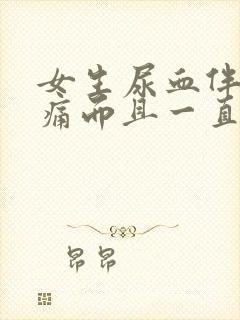 女生尿血伴
痛而且一直
昂昂